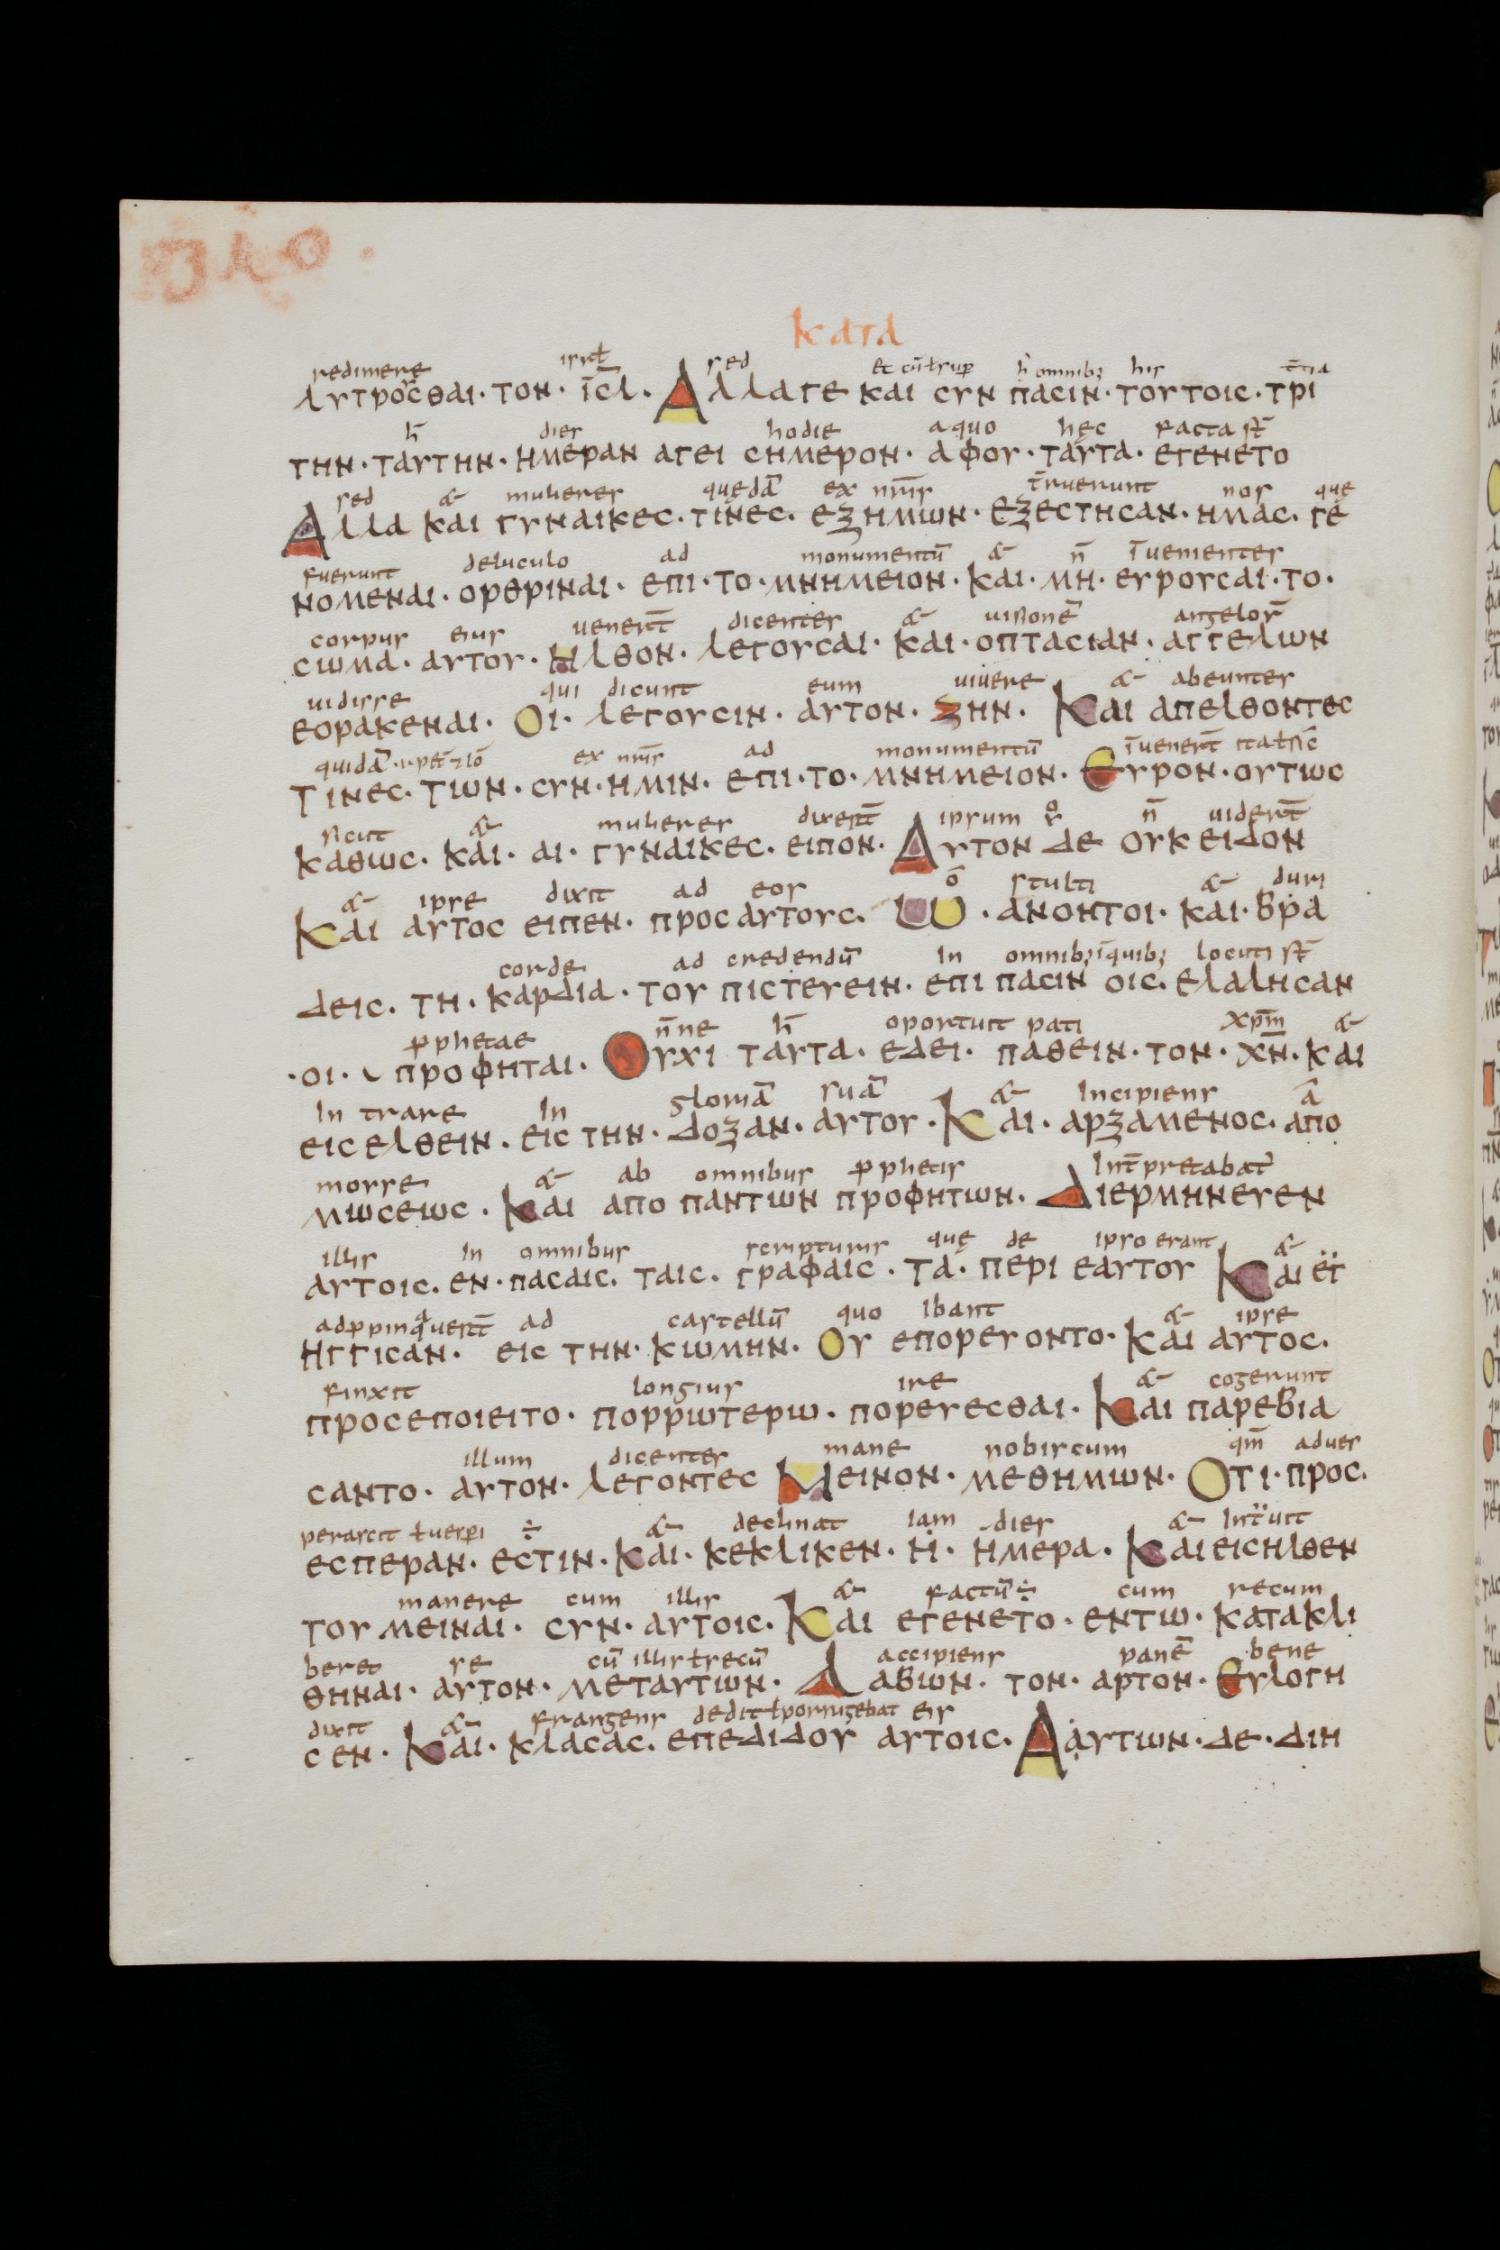 κατα
redimere isrł sed et cū super h̄ omnibʒ his t̄tia
λυτροσθαι· τον· ιc̄λ. Αλλαγε και cυν παcιν· τουτοιc· τρι
h̄ dies hodie a quo hęc facta sт̄
την· ταυτην· ημεραν αγει cημερον· αφου· ταυτα· εγενετο
sed & mulieres quedā ex nr̄is t̄ruerunt nos que
Αλλα και γυναικεc· τινεc. εξημων· εξεcτηcαν· ημαc. γε
fuerunt deluculo ad monumentū & n̄ īuenientes
νομεναι· ορθριναι· επι· το· μνημειον· και· μη· ευρουcαι· το·
corpus eius uenert̄ dicentes & uisionē angelor̄
cωμα· αυτου· Ηλθον· λεγουcαι· και· οπταcιαν· αγγελων
uidisse qui dicunt eum uiuere & abeuntes
εορακεναι· Οι· λεγουcιν· αυτον· ζην· Και απελθοντεc
quidā ex nr̄is ad monumentū īuenert̄
Τινεc· των· cυν· ημιν· επι· το· μνημειον· Ευρον· ουτωc
sicut & mulieres dixert̄ ipsum n̄ uidert̄
καθωc· και· αι· γυναικεc. ειπον· Αυτον δε ουκ ειδον
& ipse dixit ad eos ō stulti & duri
Και αυτοc ειπεν· προc αυτουc. Ω · ανοητοι· και· βρα
corde ad credendū in omnibʒ īquibʒ locuti sт̄
δειc. τη· καρδια· του πιcτευειν· επι παcιν οιc. ελαληcαν
ꝓphetae n̄ne h̄ oportuit pati xp̄m &
·οι· προφηται· Ουχι ταυτα· εδει· παθειν· τον· χν̄. και
In trare In gloriā suā & Incipiens ā
ειcελθειν· ειc την· δοξαν· αυτου· Και· αρξαμενοc· απο
mosse & ab omnibus ꝓphetis Int̄pretabat̄
μωcεωc· Και απο παντων προφητων· Διερμηνευεν
illis in omnibus scripturis que de ipso erant &
αυτοιc. εν· παcαιc. ταιc. γραφαιc· τα· περι εαυτου Και εγ
adꝓpinquert̄ ad castellū quo ibant & ipse
ηγγιcαν· ειc την· κωμην· Ου επορευοντο· και αυτοc.
finxit longius ire & cogerunt
προcεποιειτο· πορρωτερω· πορευεcθαι· Και παρεβια
illum dicentes mane nobiscum qm̄ aduer
cαντο· αυτον· λεγοντεc Μεινον· μεθημων· Οτι· προc.
perascit ł uesꝑi ÷ & declinat iam dies & Intuit
εcπεραν· εcτιν· Και· κεκλικεν· η· ημερα· Και ειcηλθεν
manere cum illis & factū÷ cum recum
του μειναι· cυν· αυτοιc· Και εγενετο· εντω· κατακλι
beret se cū illis ł secū accipiens panē bene
θηναι· αυτον· μεταυτων· Λαβων· τον· αρτον· Ευλογη
dixit & frangens dedit ł porrigebat eis
cεν· Και· κλαcαc. επεδιδου αυτοιc. Ααυτων· δε· διη